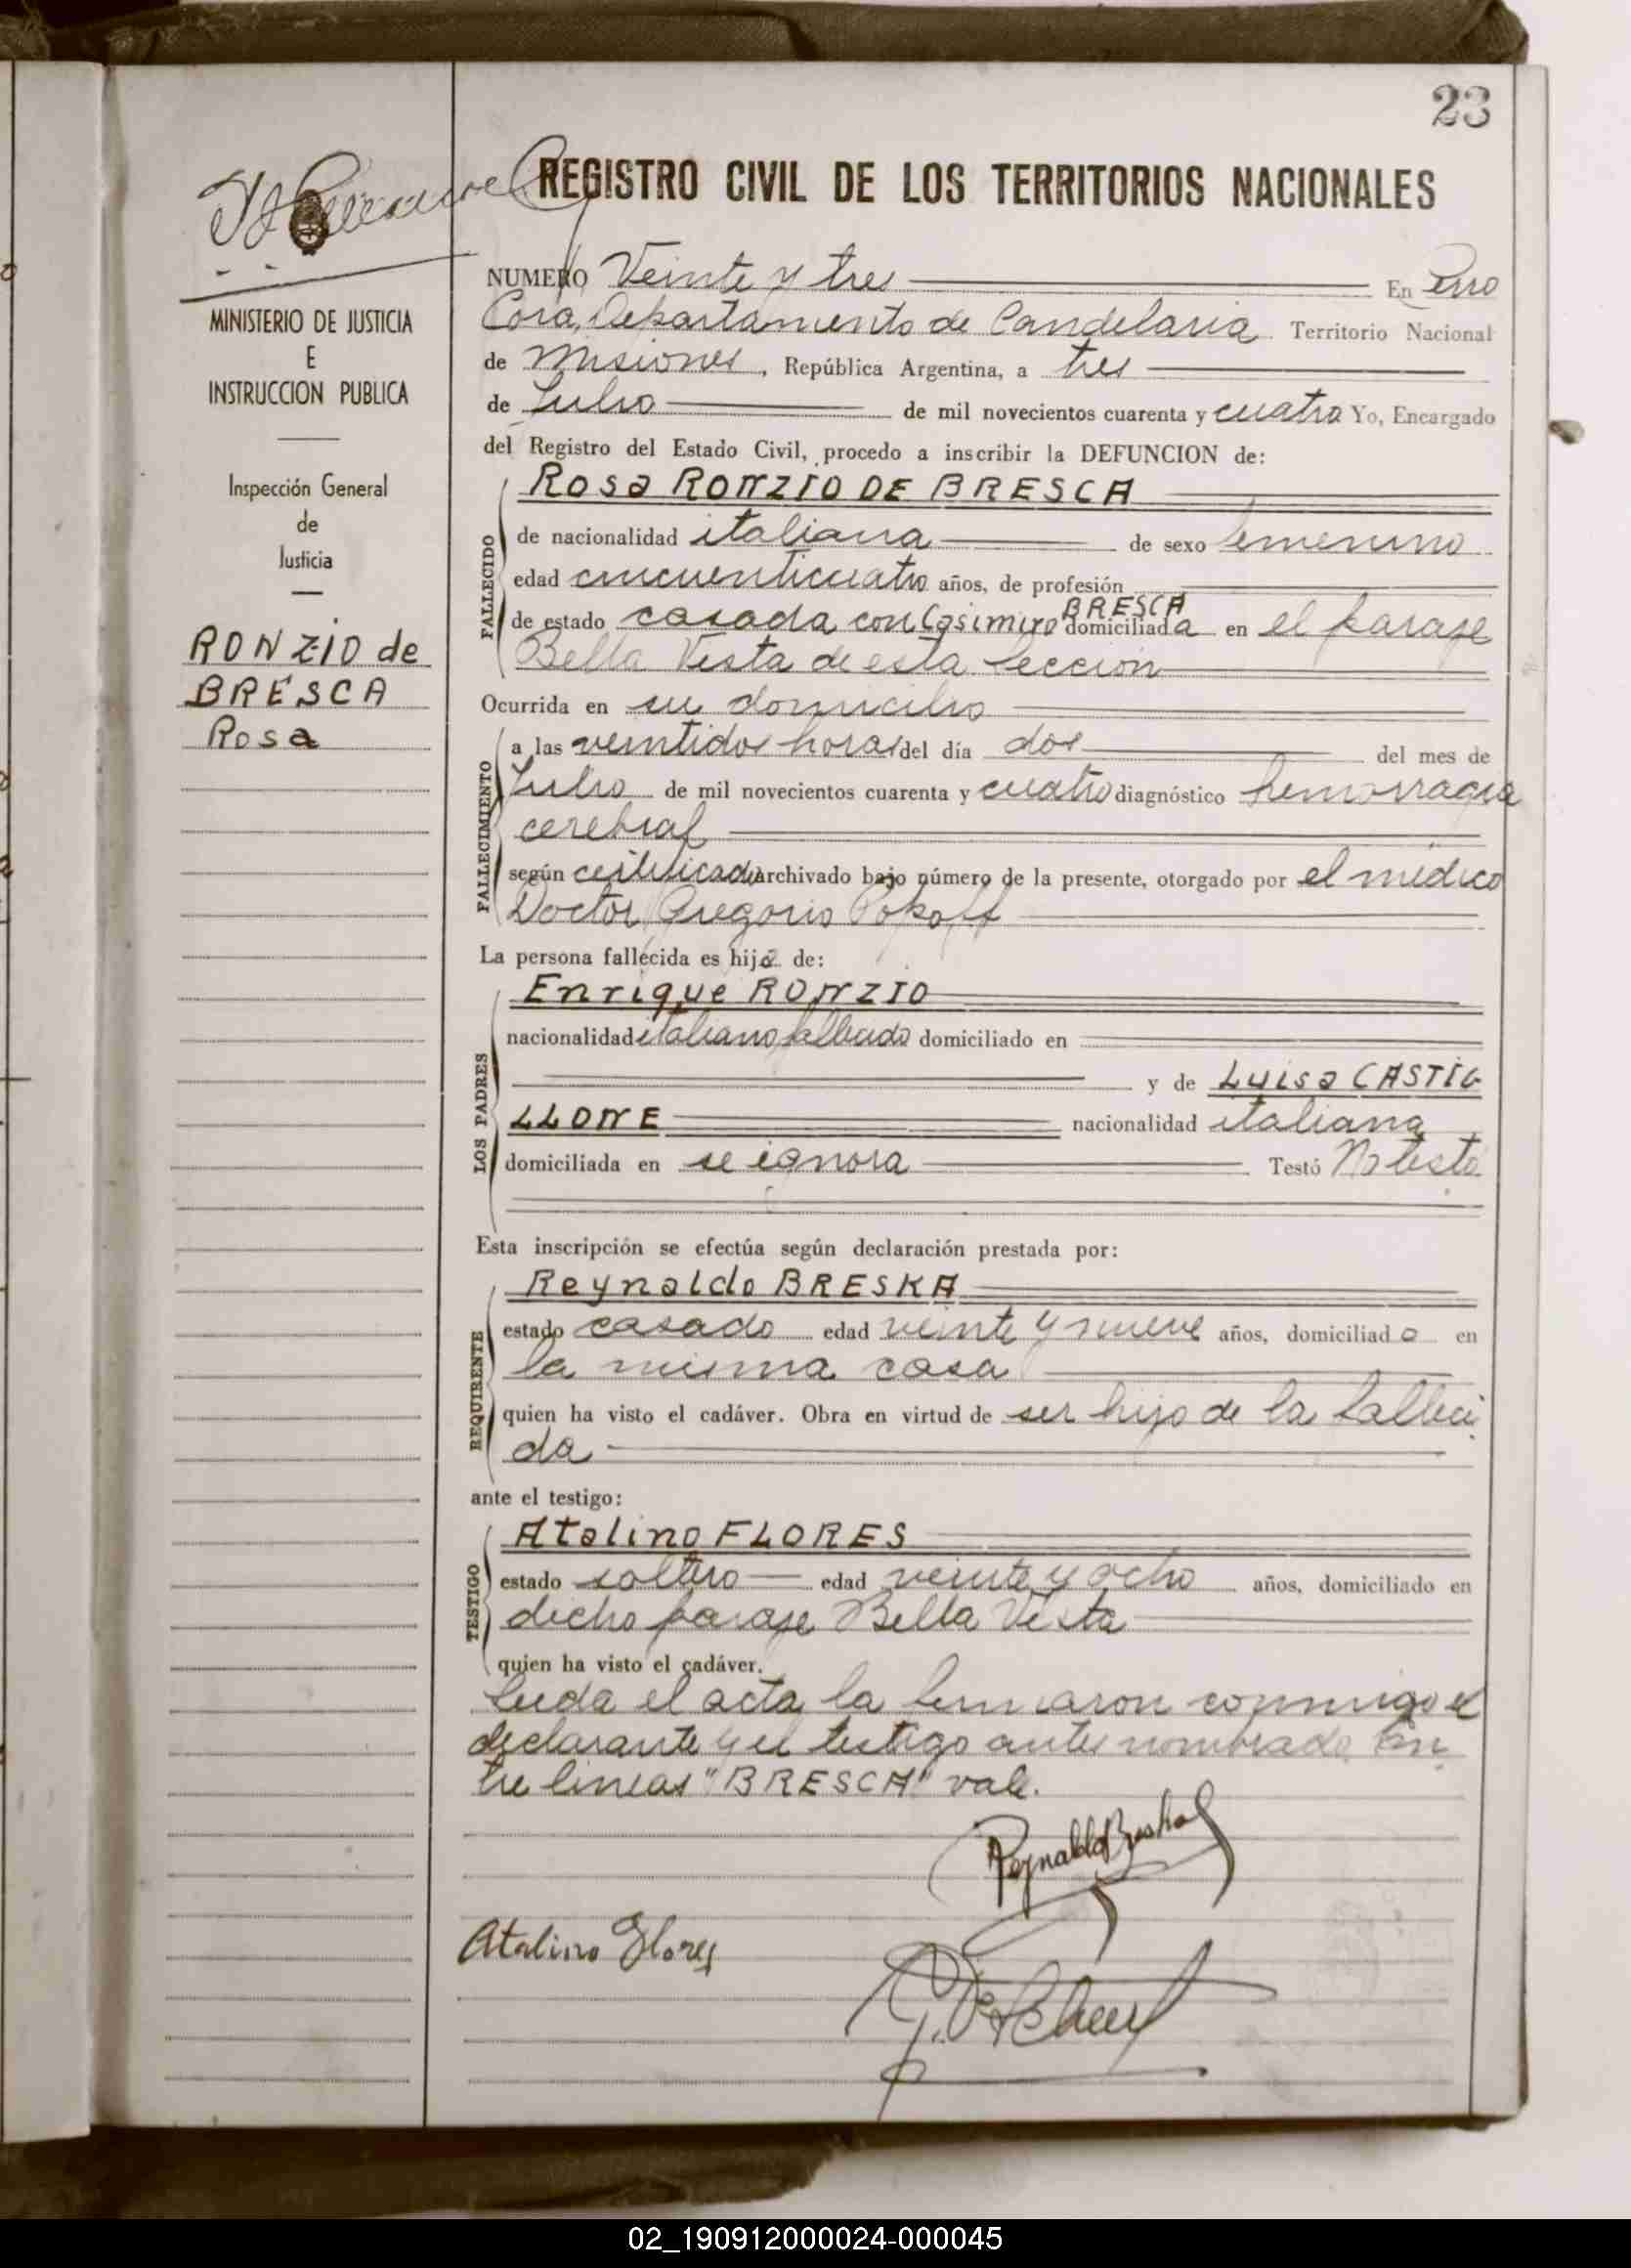 23
REGISTRO CIVIL DE LOS TERRITORIOS NACIONALES
MINISTERIO DE JUSTICIA
E
INSTRUCCION PUBLICA
Inspección General
de
Justicia
RONZIO de
BRESCA
Rosa
NUMERO Veinte y tres En Cerro
Corá, Departamento de Candelaria Territorio Nacional
de Misiones, República Argentina, a tres
de Julio de mil novecientos cuarenta y cuatro Yo, Encargado
del Registro del Estado Civil, procedo a inscribir la DEFUNCION de:
Rosa RONZIO DE BRESCA
FALLECIDO
de nacionalidad italiana de sexo femenino
edad cincuenticuatro años, de profesión
BRESCA
de estado casada con Casimiro domiciliada en el paraje
Bella Vista de esta Sección
Ocurrida en su domicilio
FALLECIMIENTO
a las veintidos horas del día dos del mes de
Julio de mil novecientos cuarenta y cuatro diagnóstico hemorragia
cerebral
según certificado archivado bajo número de la presente, otorgado por el médico
Doctor Gregorio Popoff
La persona fallecida es hija de:
LOS PADRES
Enrique RONZIO
nacionalidad italiano fallecido domiciliado en
y de Luisa CASTIG
LLONE nacionalidad italiana
domiciliada en se ignora Testó No testó
Esta inscripción se efectúa según declaración prestada por:
REQUIRENTE
Reynaldo BRESKA
estado casado edad veinte y nueve años, domiciliado en
la misma casa
quien ha visto el cadáver. Obra en virtud de ser hijo de la falleci
da
ante el testigo:
TESTIGO
Atalino FLORES
estado soltero edad veinte y ocho años, domiciliado en
dicho paraje Bella Vista
quien ha visto el cadáver.
Leída el acta, la firmaron conmigo el
declarante y el testigo antes nombrado. En
tre lineas "BRESCA" vale.
Reynaldo Breska
Atalino Flores
02_190912000024-000045